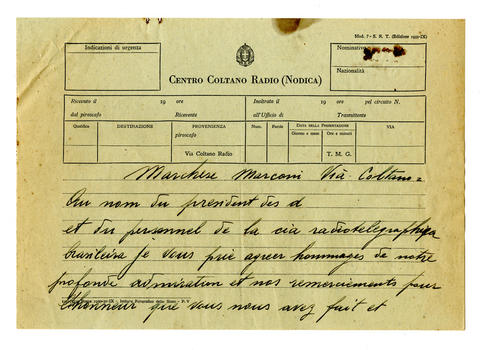 Mod. 7 - S. R. T. (Edizione 1931-IX)
Indicazioni di urgenza
Nominativo
Nazionalità
CENTRO COLTANO RADIO (NODICA)
Ricevuto il 19 ore
dal piroscafo Ricevente
Inoltrato il 19 ore pel circuito N.
all'Ufficio di Trasmittente
Qualifica DESTINAZIONE PROVENIENZA Num. Parole DATA DELLA PRESENTAZIONE VIA
piroscafo Giorno e mese Ore e minuti
Via Coltano Radio T. M. G.
Marchese Marconi Vià Coltano =
Au nom du president des d
et du personnel de la cia radiotelegraphica
brasileira je vous prie agreer hommages de notre
profonde admiration et nos remerciements pour
l'honneur que vous nous avez fait et
Istituto Poligrafico dello Stato - P. V.